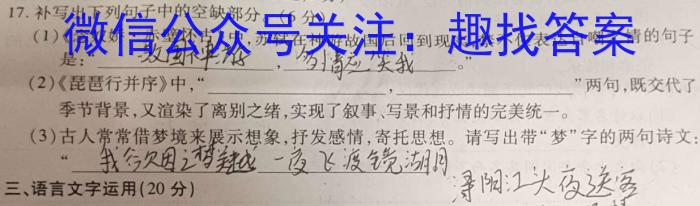 17. 补写出下列句子中的空缺部分。(6分)
微信公众号关注：趣找答案
(1)
是：“故国神游，多情应笑我。”
(2)《琵琶行并序》中，“，”两句，既交代了
季节背景，又渲染了离别之绪，实现了叙事、写景和抒情的完美统一。
(3)古人常常借梦境来展示想象，抒发感情，寄托思想。请写出带“梦”字的两句诗文：
“我欲因之梦 一夜飞渡镜湖月
浔阳江头夜送客
三、语言文字运用(20分)